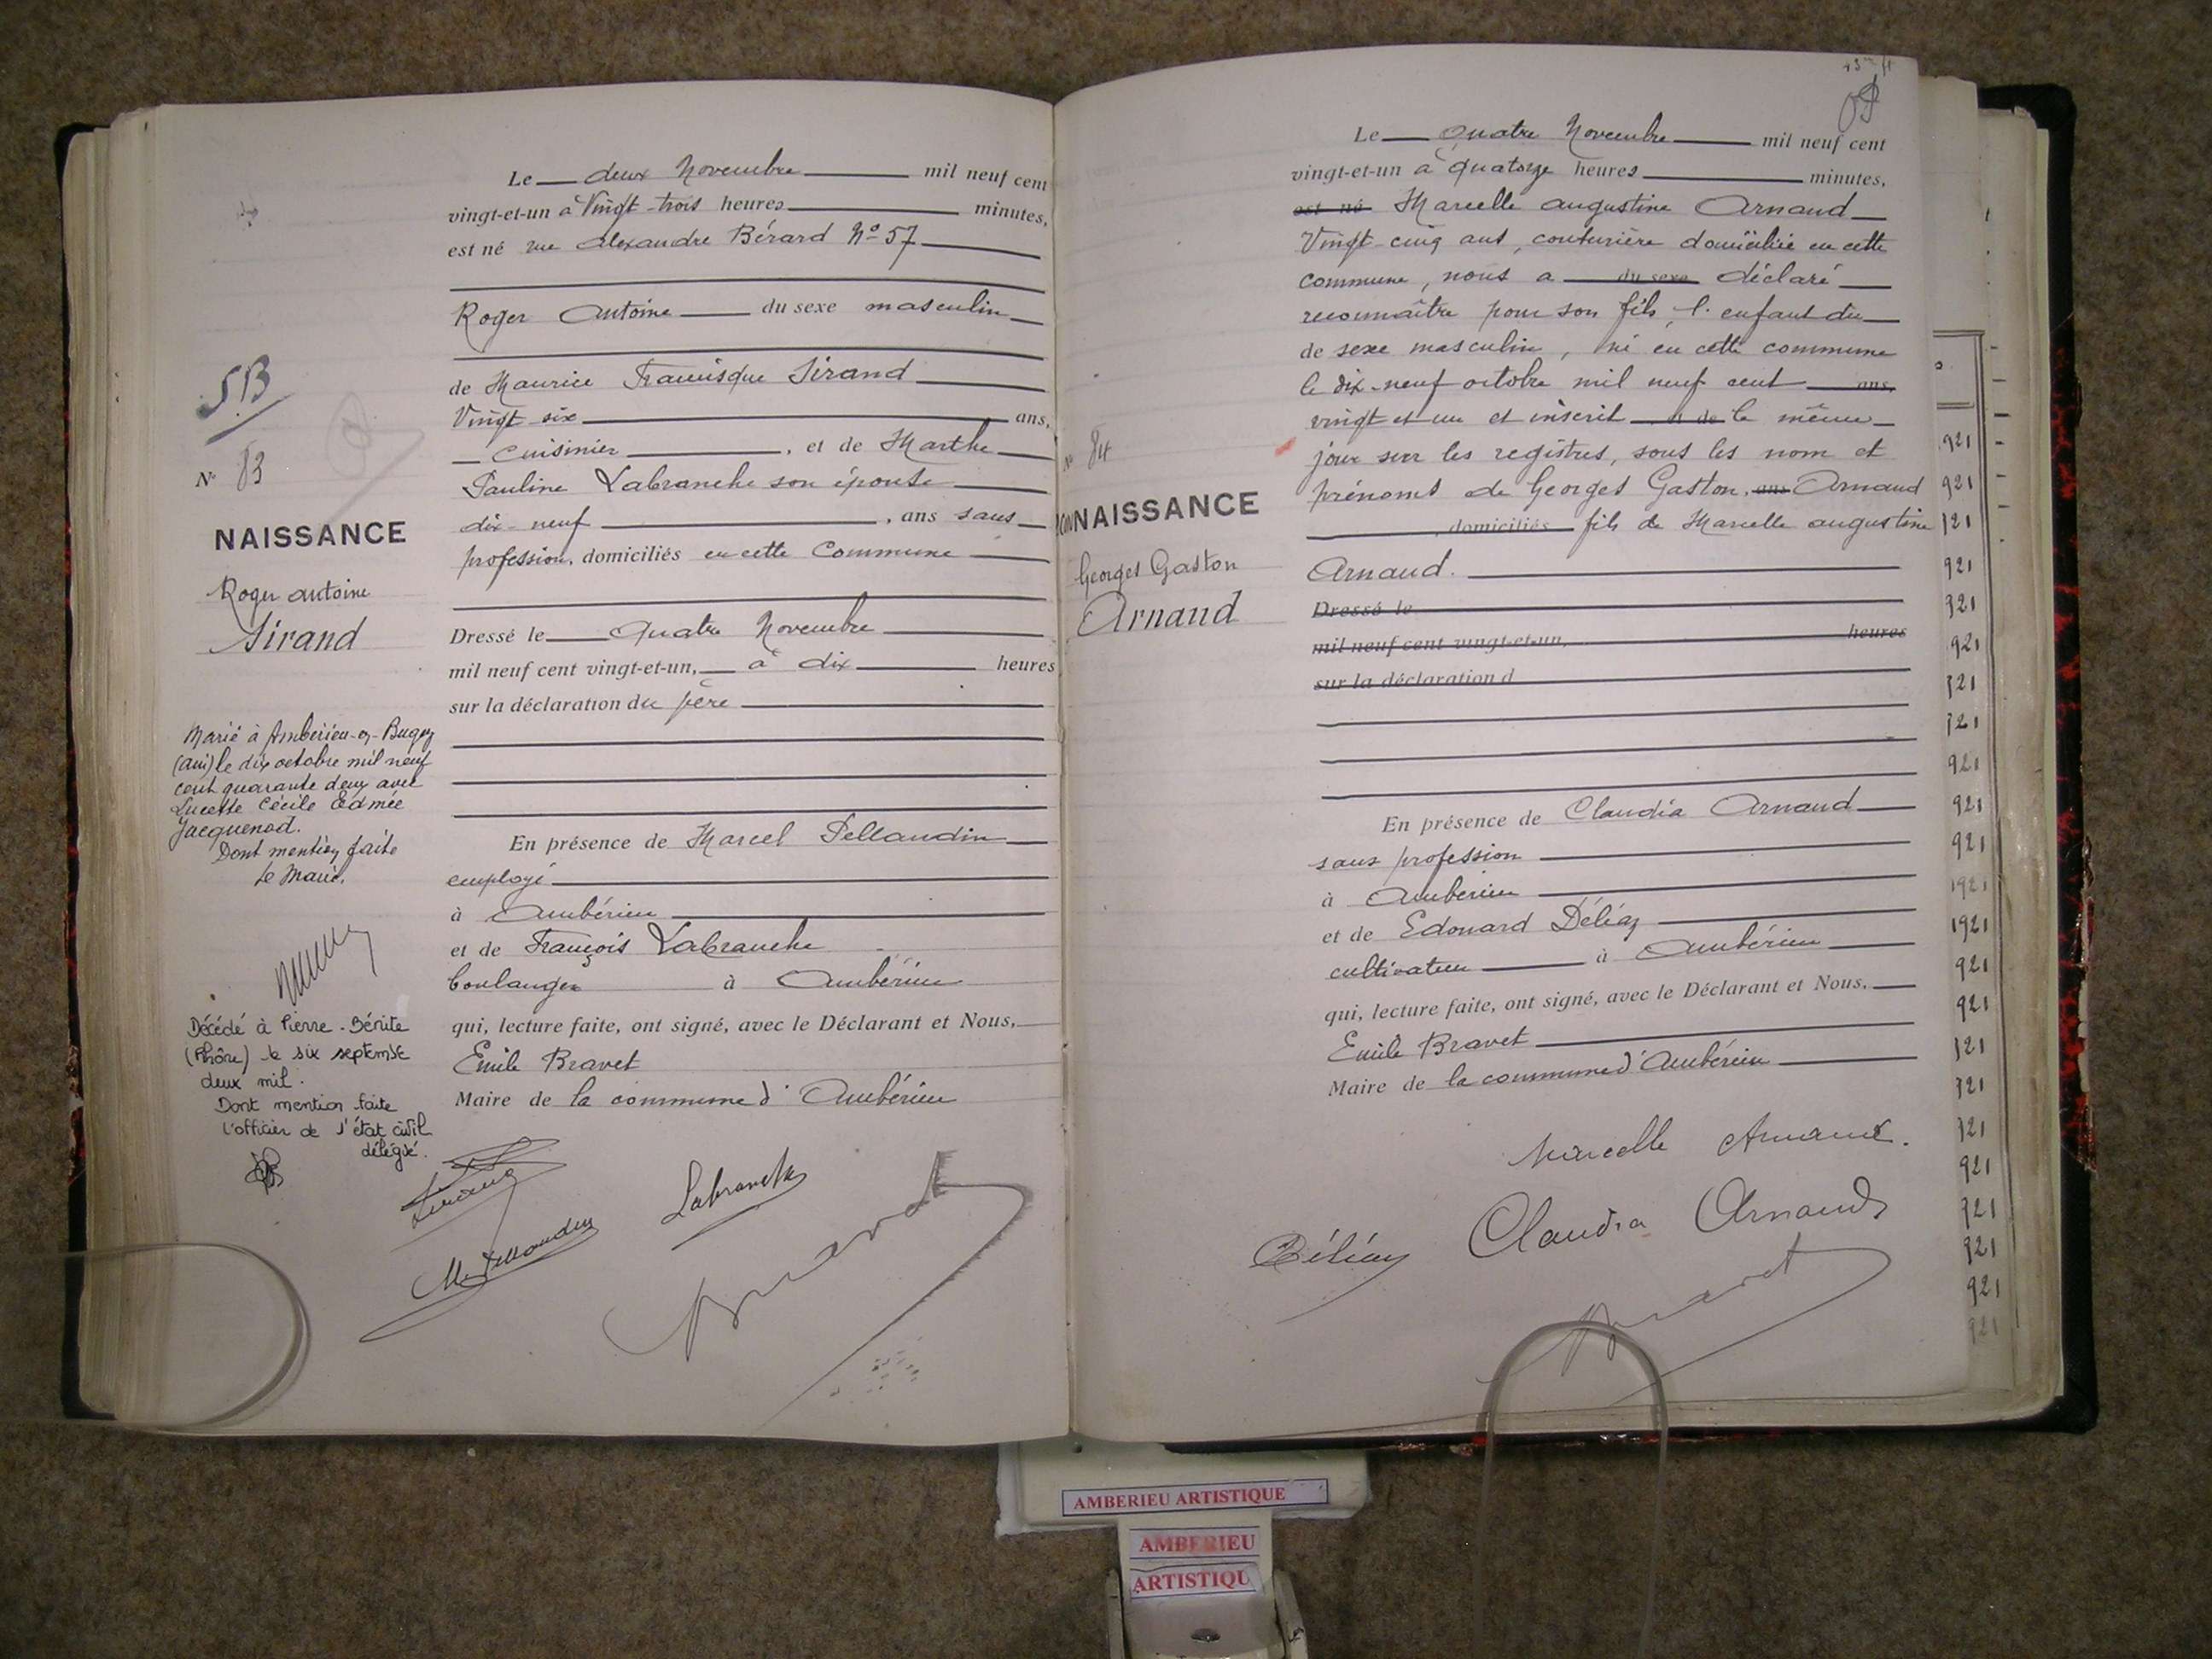 5B
N° 83
NAISSANCE
Roger Antoine
Sirand
Marié à Ambérieu-en-Bugey
(Ain) le dix octobre mil neuf
cent quarante deux avec
Lucette Cécile Edmée
Jacquenod.
Dont mention faite
Le Maire,
Décédé à Pierre-Bénite
(Rhône) le six septembre
deux mil.
Dont mention faite
L'officier de l'état civil
délégué.
Le deux Novembre mil neuf cent
vingt-et-un à Vingt-trois heures minutes,
est né rue Alexandre Bérard N° 57
Roger Antoine du sexe masculin
de Maurice Francisque Sirand
Vingt six ans,
cuisinier, et de Marthe
Pauline Labranche son épouse
dix-neuf, ans sans
profession, domiciliés en cette Commune
Dressé le Quatre Novembre
mil neuf cent vingt-et-un, à dix heures
sur la déclaration du père
En présence de Marcel Pellaudin
employé
à Ambérieu
et de François Labranche
boulanger à Ambérieu
qui, lecture faite, ont signé, avec le Déclarant et Nous,
Emile Bravet
Maire de la commune d'Ambérieu
Sirand
Labranche
Bravet
N° 84
RECONNAISSANCE
Georges Gaston
Arnaud
Le Quatre Novembre mil neuf cent
vingt-et-un à quatorze heures minutes,
est né Marcelle Augustine Arnaud
Vingt-cinq ans, couturière domiciliée en cette
commune, nous a du sexe déclaré
reconnaître pour son fils, l'enfant du
de sexe masculin, né en cette commune
le dix-neuf octobre mil neuf cent ans,
vingt et un et inscrit et de le même
jour sur les registres, sous les nom et
prénoms de Georges Gaston, ans Arnaud
domiciliés fils de Marcelle Augustine
Arnaud.
Dressé le
mil neuf cent vingt-et-un, heures
sur la déclaration d
En présence de Claudia Arnaud
sans profession
à Ambérieu
et de Edouard Déléaz
cultivateur à Ambérieu
qui, lecture faite, ont signé, avec le Déclarant et Nous,
Emile Bravet
Maire de la commune d'Ambérieu
Marcelle Arnaud.
Déléaz Claudia Arnaud
Bravet
921
921
921
921
921
921
921
921
921
921
921
1921
1921
921
921
921
921
921
921
921
921
921
921
AMBERIEU ARTISTIQUE
AMBERIEU
ARTISTIQU